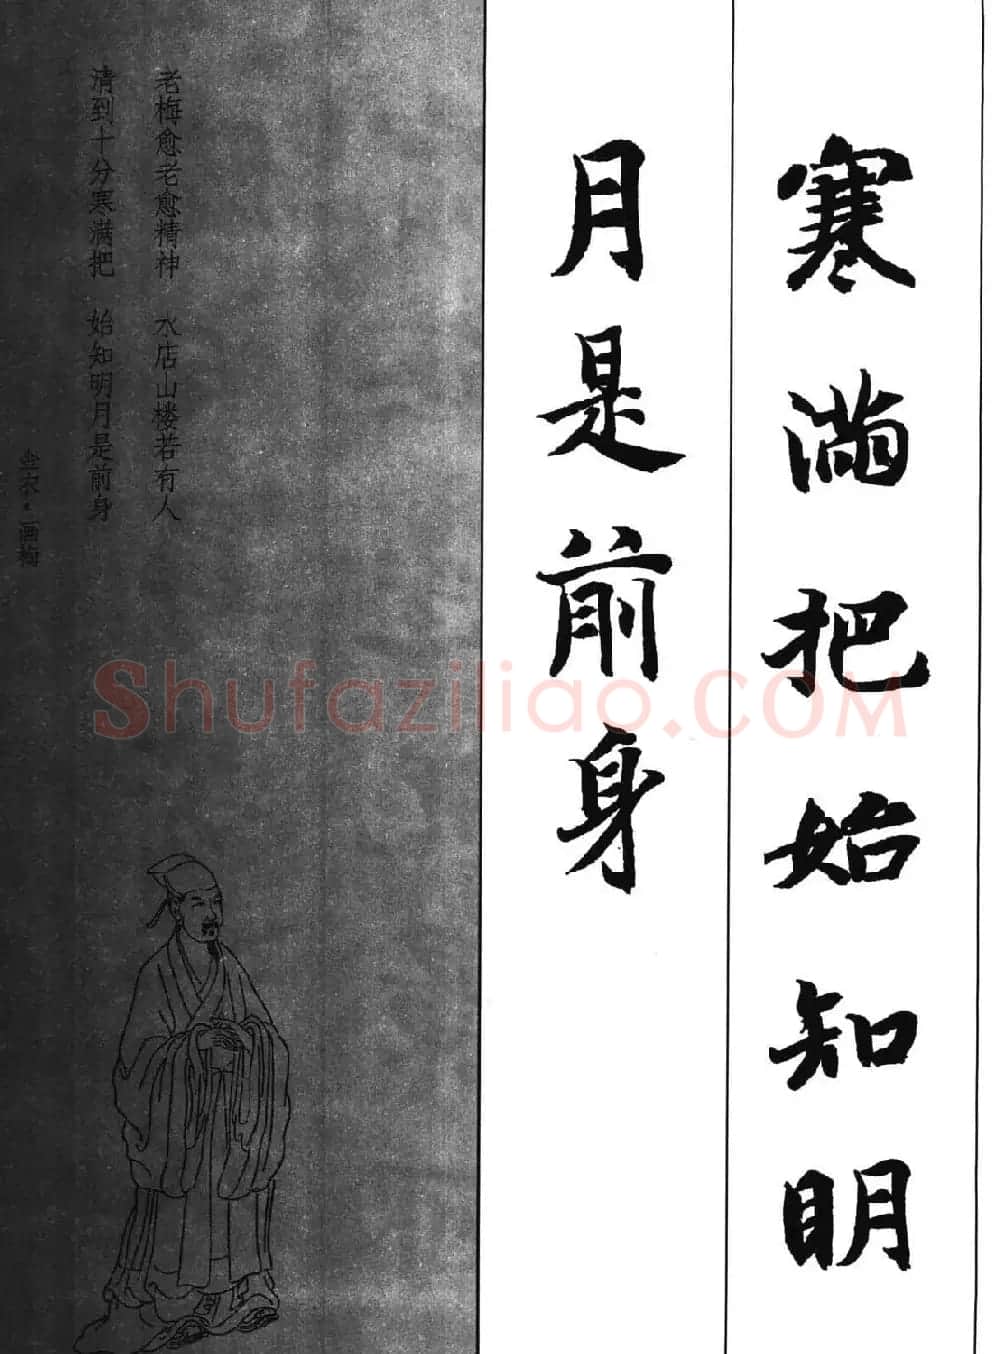 寒满把始知明
月是前身
老梅愈老愈精神 水店山楼若有人
清到十分寒满把 始知明月是前身
金农·画梅
Shufaziliao.COM